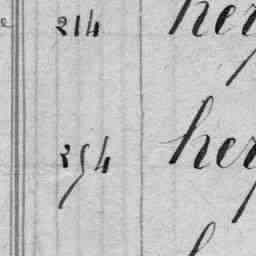 214 her
254 her